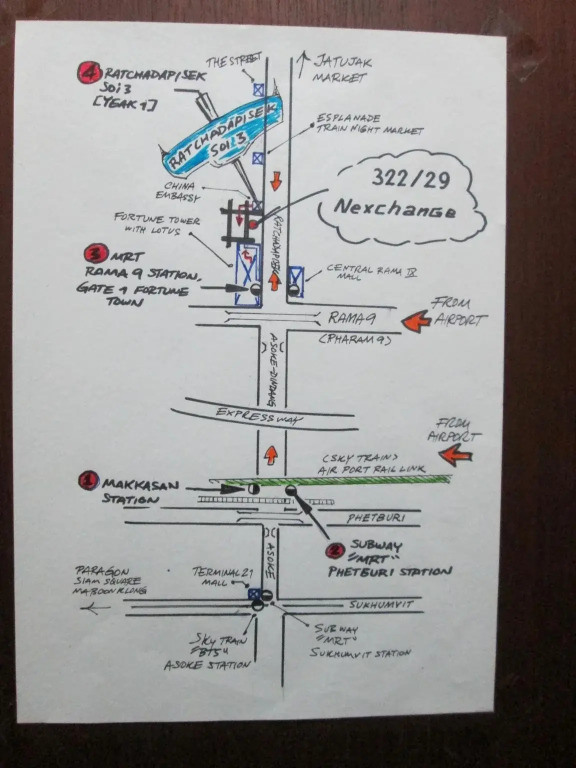 THE STREET
JATUJAK
MARKET
4 RATCHADAPISEK
SOi 3
[YEAK 1]
RATCHADAPISEK
SOi 3
ESPLANADE
TRAIN NIGHT MARKET
CHINA
EMBASSY
322/29
Nexchange
FORTUNE TOWER
WITH LOTUS
3 MRT
RAMA 9 STATION,
GATE 1 FORTUNE
TOWN
CENTRAL RAMA IX
MALL
RAMA 9
(PHARAM 9)
FROM
AIRPORT
ASOKE-DINDANG
EXPRESSWAY
FROM
AIRPORT
(SKY TRAIN)
AIR PORT RAIL LINK
1 MAKKASAN
STATION
PHETBURI
2 SUBWAY
"MRT"
PHETBURI STATION
ASOKE
PARAGON
SIAM SQUARE
MABOONKLONG
TERMINAL 21
MALL
SUKHUMVIT
SKY TRAIN
"BTS"
ASOKE STATION
SUBWAY
"MRT"
SUKHUMVIT STATION